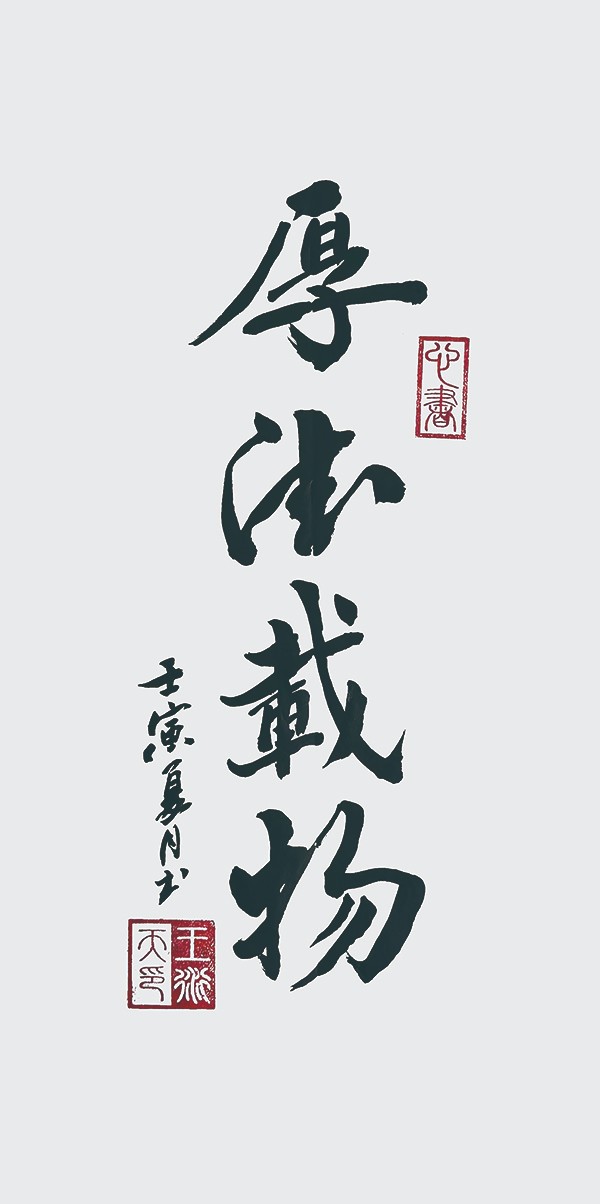 厚德載物
心書
壬寅夏月书
王衍
天印